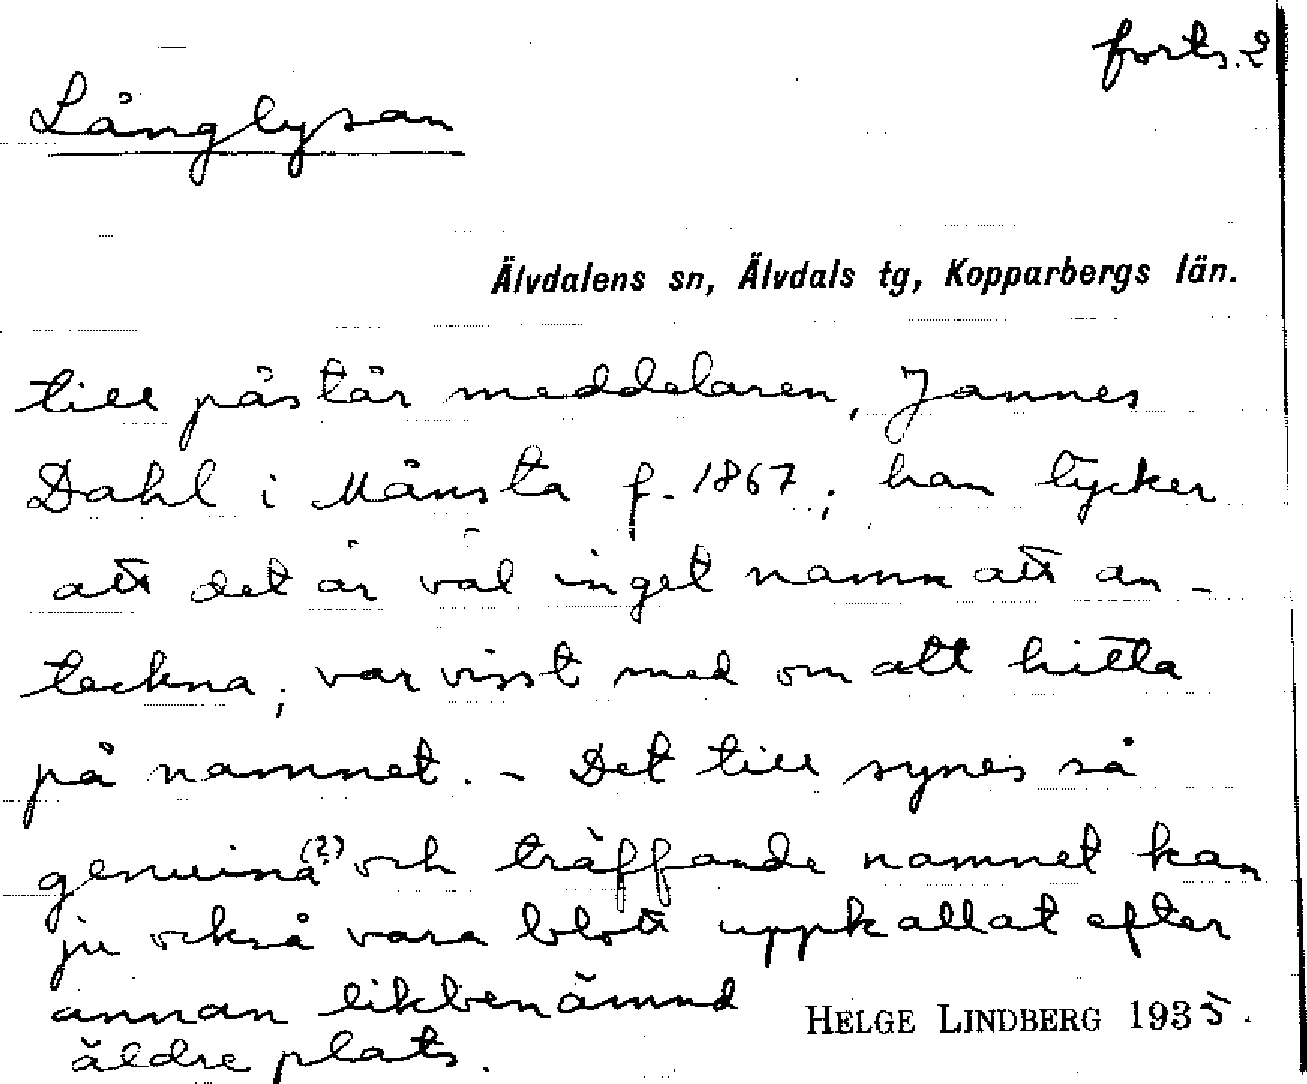 forts. 2
Långlysan
Älvdalens sn, Älvdals tg, Kopparbergs län.
till påstår meddelaren, Jannes
Dahl i Månsta f. 1867; han tycker
att det är väl inget namn att an-
teckna; var visst med om att hitta
på namnet. - Det till synes så
genuina (?) och träffande namnet kan
ju också vara blott uppkallat efter
annan likbenämnd
äldre plats.
HELGE LINDBERG 1935.